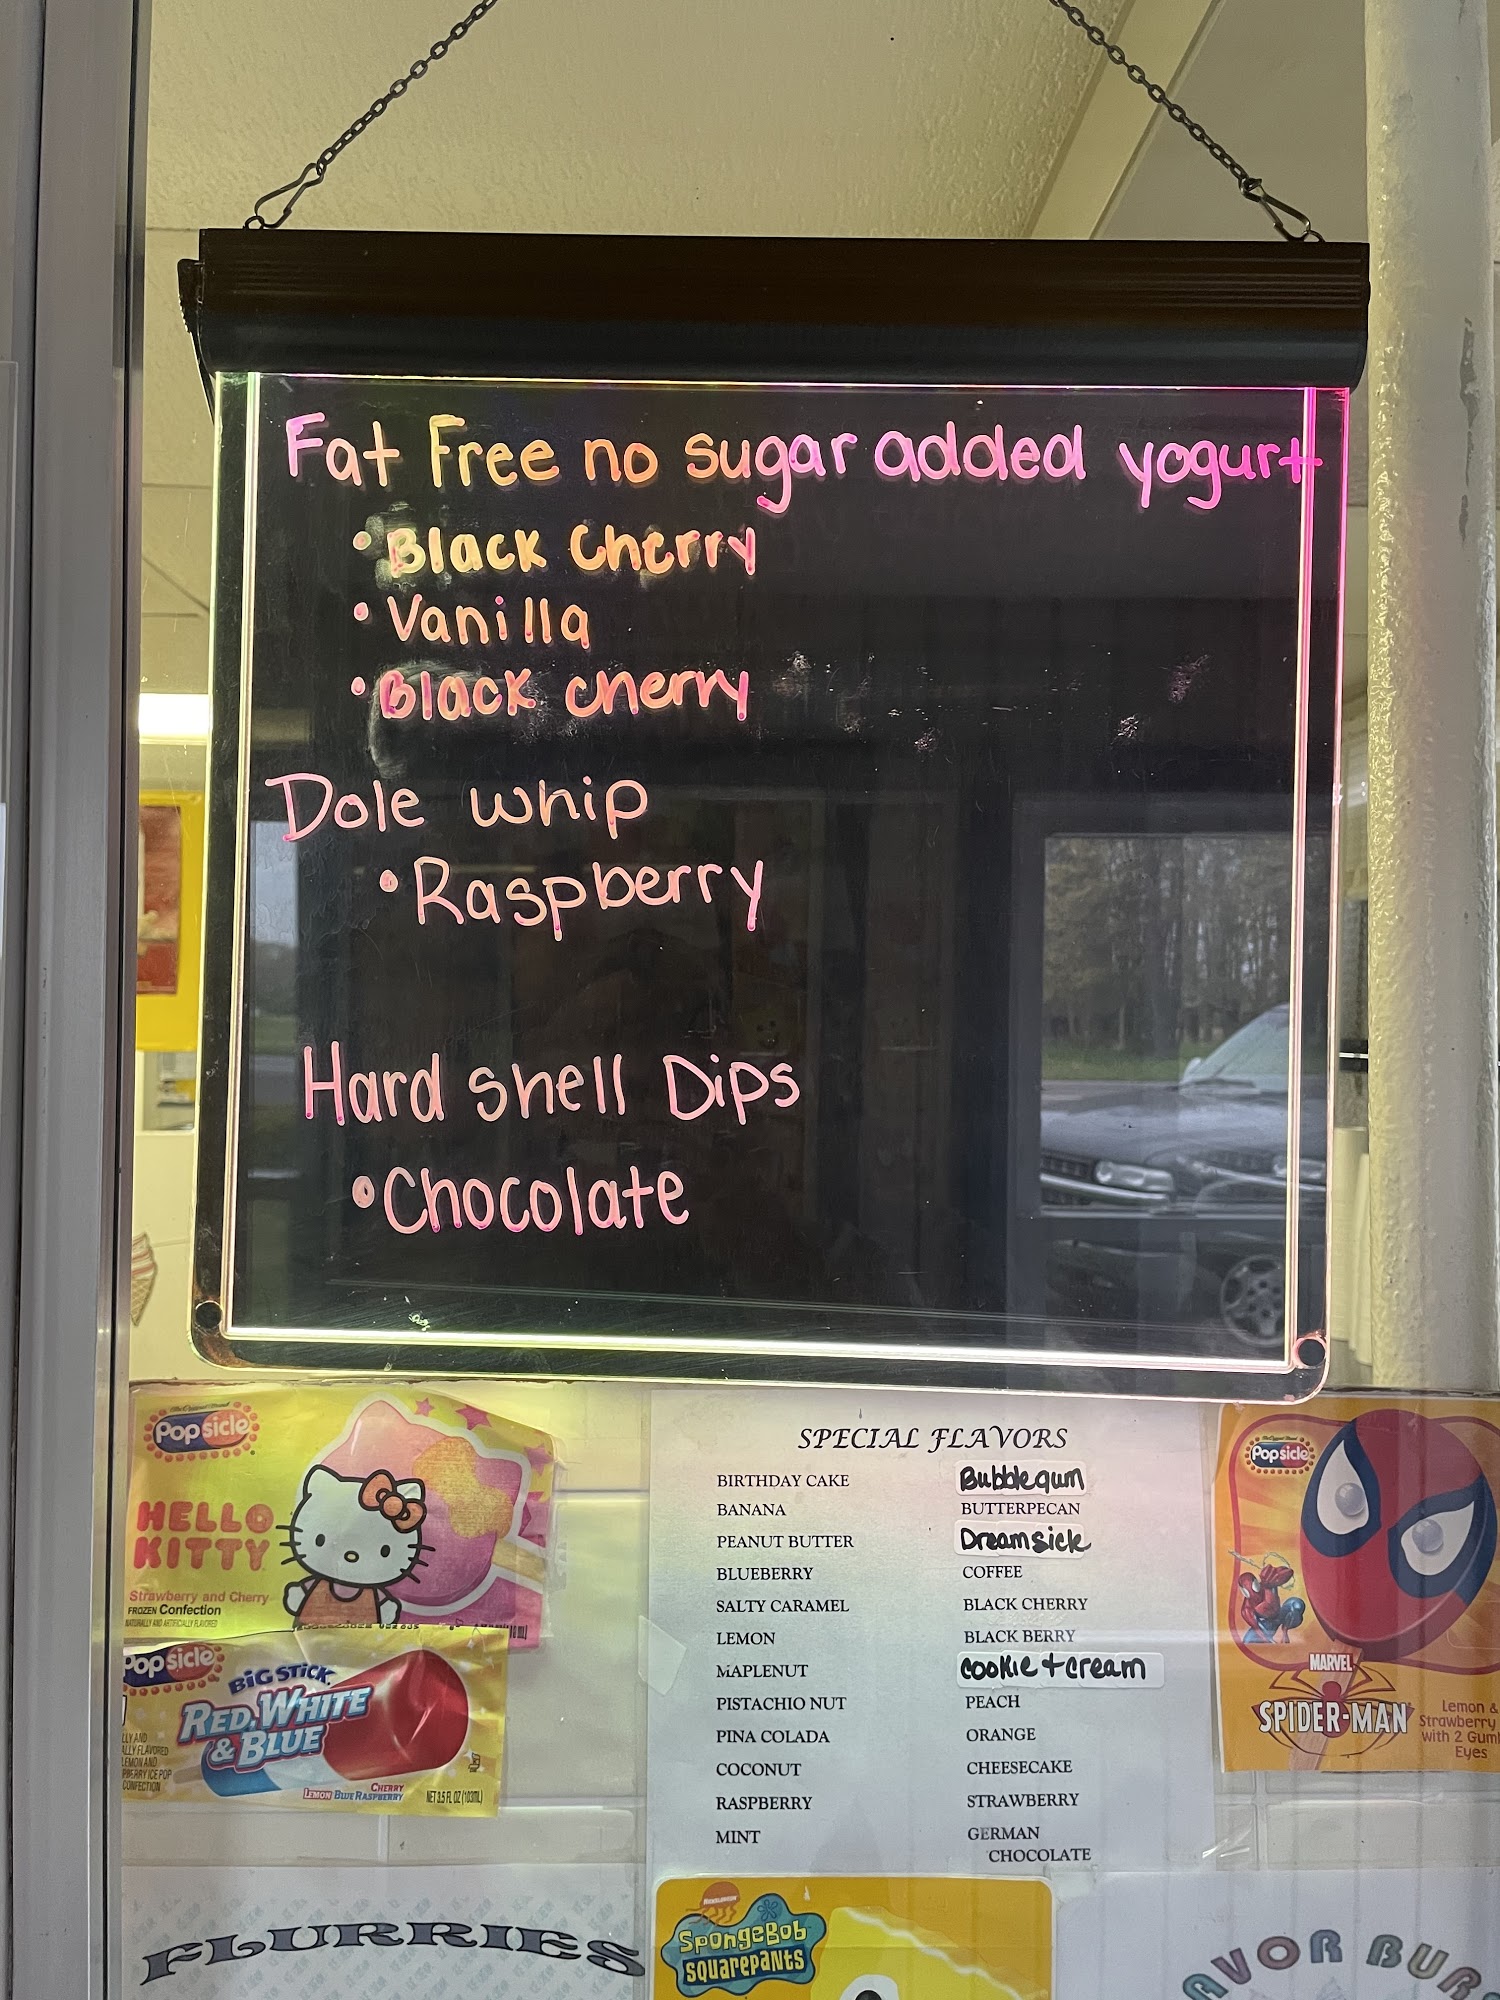 Fat Free no sugar added yogurt
•Black Cherry
•Vanilla
•Black cherry
Dole whip
•Raspberry
Hard shell Dips
•Chocolate
Popsicle
HELLO
KITTY
Strawberry and Cherry
FROZEN Confection
NATURALLY AND ARTIFICIALLY FLAVORED
Popsicle
BIG STICK
RED, WHITE
& BLUE
CHERRY
LEMON BLUE RASPBERRY
NET 3.5 FL OZ (103mL)
SPECIAL FLAVORS
BIRTHDAY CAKE
BANANA
PEANUT BUTTER
BLUEBERRY
SALTY CARAMEL
LEMON
MAPLENUT
PISTACHIO NUT
PINA COLADA
COCONUT
RASPBERRY
MINT
Bubblegum
BUTTERPECAN
Dreamsicle
COFFEE
BLACK CHERRY
BLACK BERRY
cookie + cream
PEACH
ORANGE
CHEESECAKE
STRAWBERRY
GERMAN
CHOCOLATE
Popsicle
MARVEL
SPIDER-MAN
Lemon &
Strawberry
with 2 Gum
Eyes
FLURRIES
NICKELODEON
SPONGEBOB
SQUAREPANTS
AVOR BUR